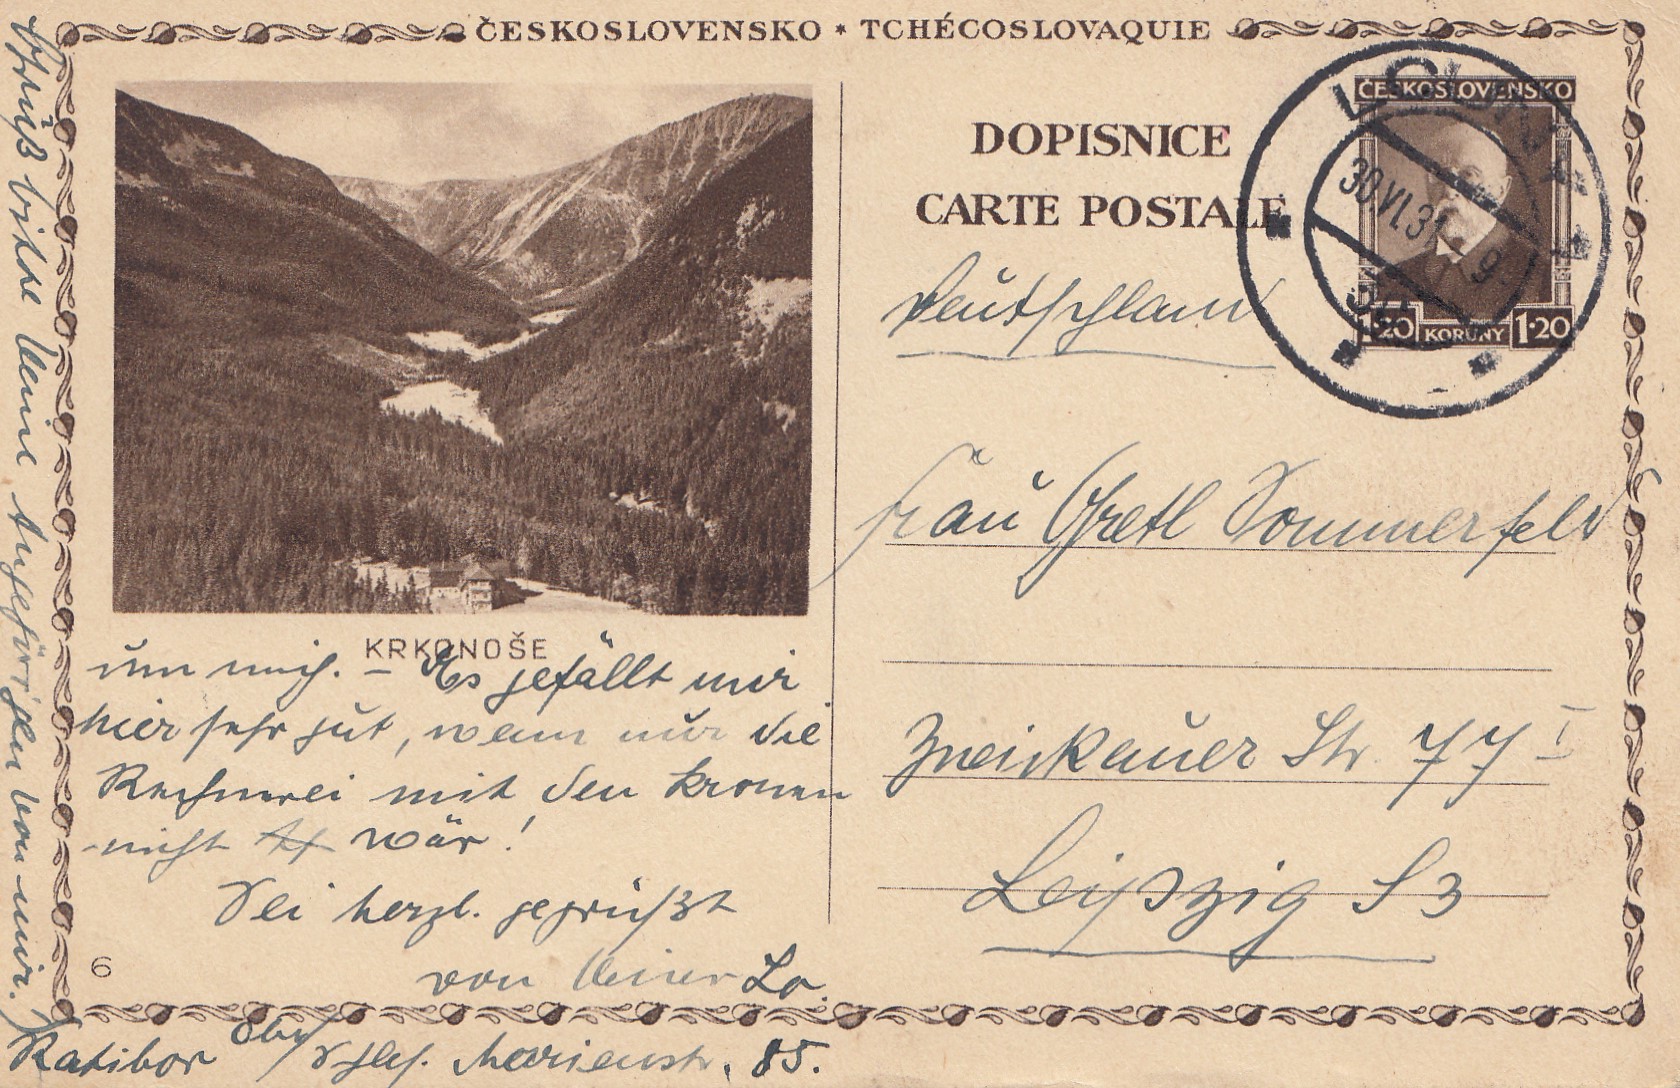 ČESKOSLOVENSKO * TCHÉCOSLOVAQUIE
DOPISNICE
CARTE POSTALE
ČESKOSLOVENSKO
1·20 KORUNY 1·20
30.VI.31. 9
KRKONOŠE
um mich. – Es gefällt mir
hier sehr gut, wenn nur die
Rechnerei mit den Kronen
nicht wär!
Sei herzl. gegrüßt
von Deiner Lo.
6
Ratibor Obschles. Marienstr. 85.
Grüß bitte Deine Angehörigen von mir.
Deutschland
Frau Gretl Sommerfeld
Zwickauer Str. 77 I
Leipzig S3